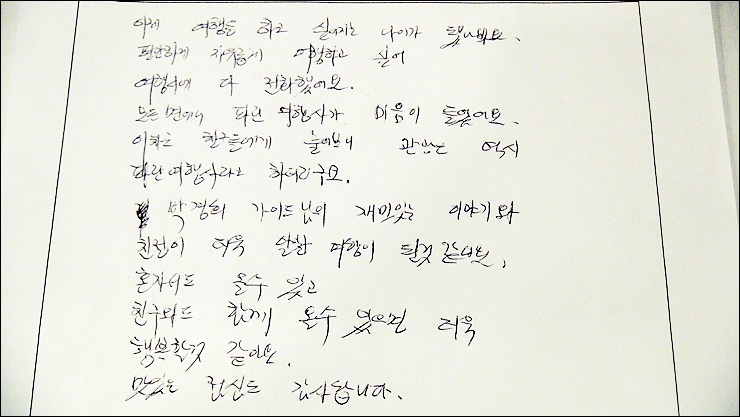 이제 여행을 하고 싶어지는 나이가 됐나봐요.
편안하게 자유롭게 여행하고 싶어
여행사에 다 전화했어요.
모든 면에서 파란 여행사가 마음이 들었어요.
이화는 친구들에게 물어보니 관광은 역시
파란여행사라고 하더라구요.
박경희 가이드님의 재미있는 이야기와
친절이 더욱 알찬 여행이 될것 같네요.
혼자서도 올수 있고
친구와도 함께 올수 있으면 더욱
행복할것 같아요.
맛있는 점심도 감사합니다.